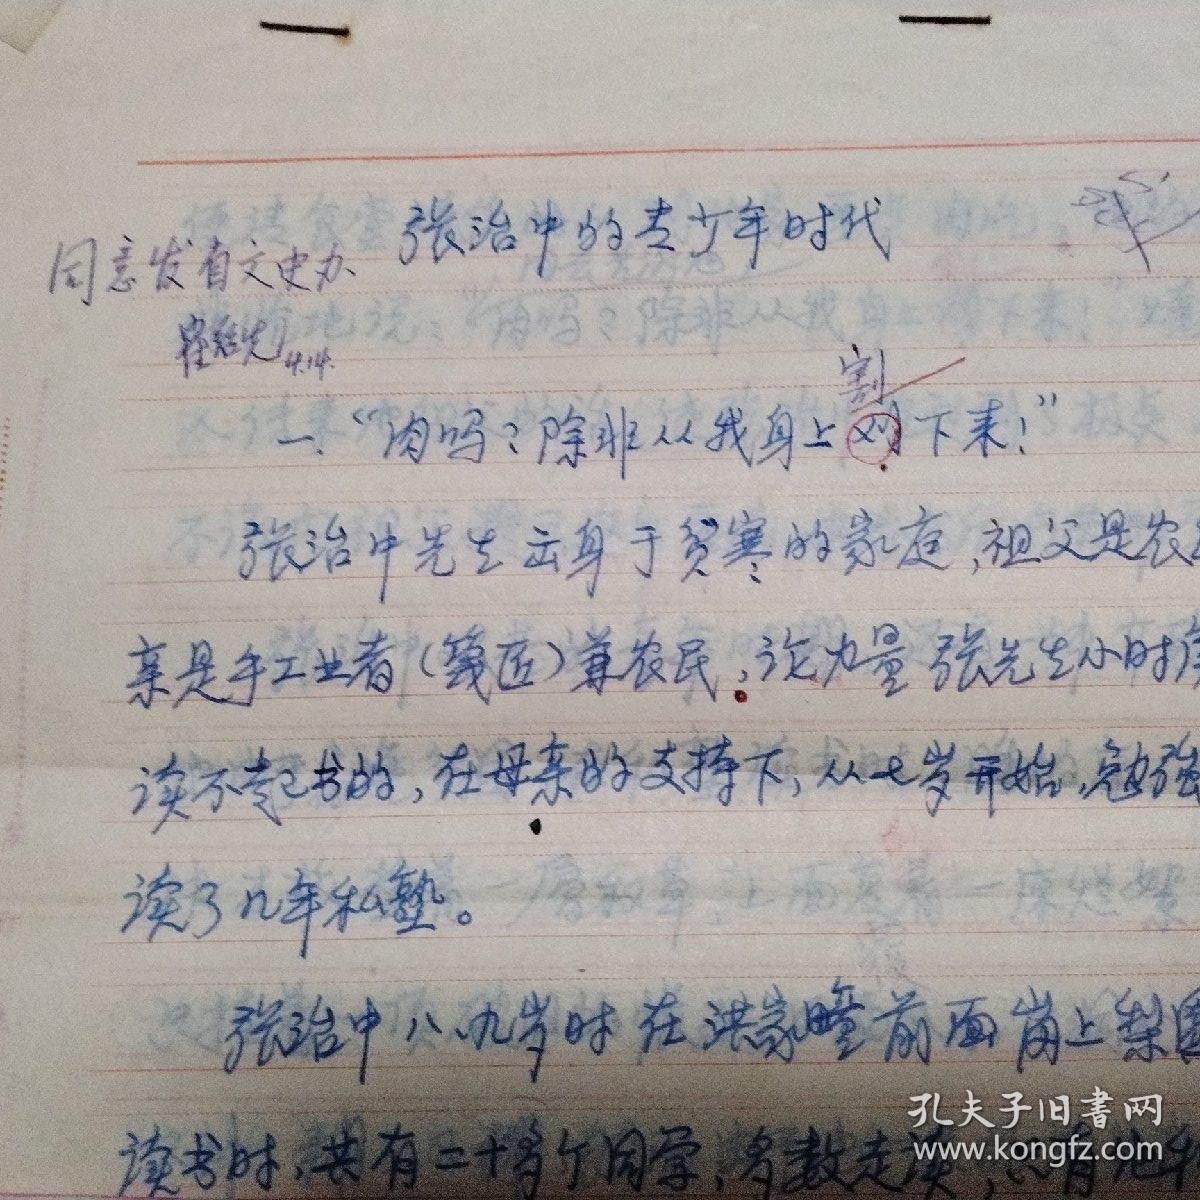 张治中的青少年时代
同意发省文史办
4.14.
割
一、“肉吗？除非从我身上刈下来！”
张治中先生出身于贫寒的家庭，祖父是农
亲是手工业者（篾匠）兼农民，论力量张先生小时
读不起书的，在母亲的支持下，从七岁开始，勉强
读了几年私塾。
张治中八、九岁时在洪家疃前面岗上梨园
读书时，共有二十多个同学，多数走读，只有
孔夫子旧书网
www.kongfz.com